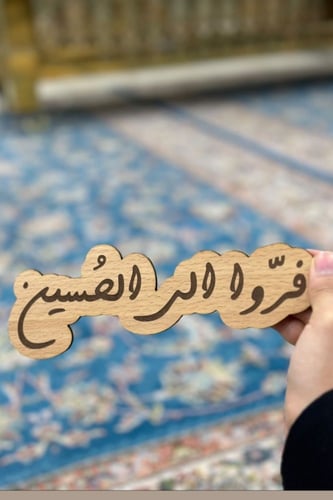 فرّوا الى الحُسين